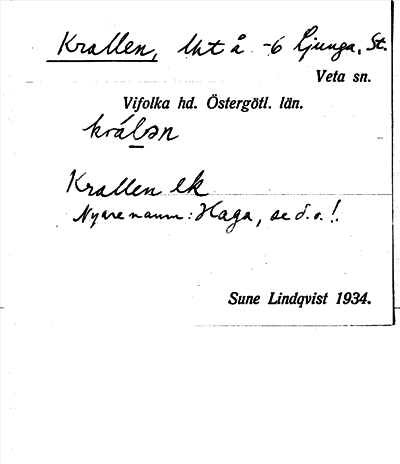 Krallen, lht å -6 Ljunga, St.
Veta sn.
Vifolka hd. Östergötl. län.
králən
Krallen ek
Nyare namn: Haga, se d.o.!
Sune Lindqvist 1934.